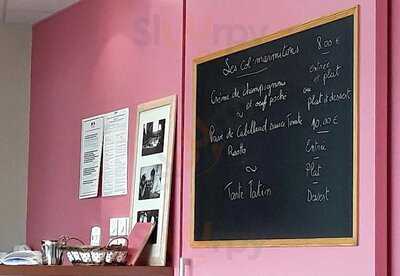 Les col-marmitons 8.00 €
Crème de champignons
et oeuf poché
~
Pavé de Cabillaud sauce Tomate
Risotto
~
Tarte Tatin
Entrée
et plat
ou
plat et dessert
10.00 €
Entrée
Plat
Dessert